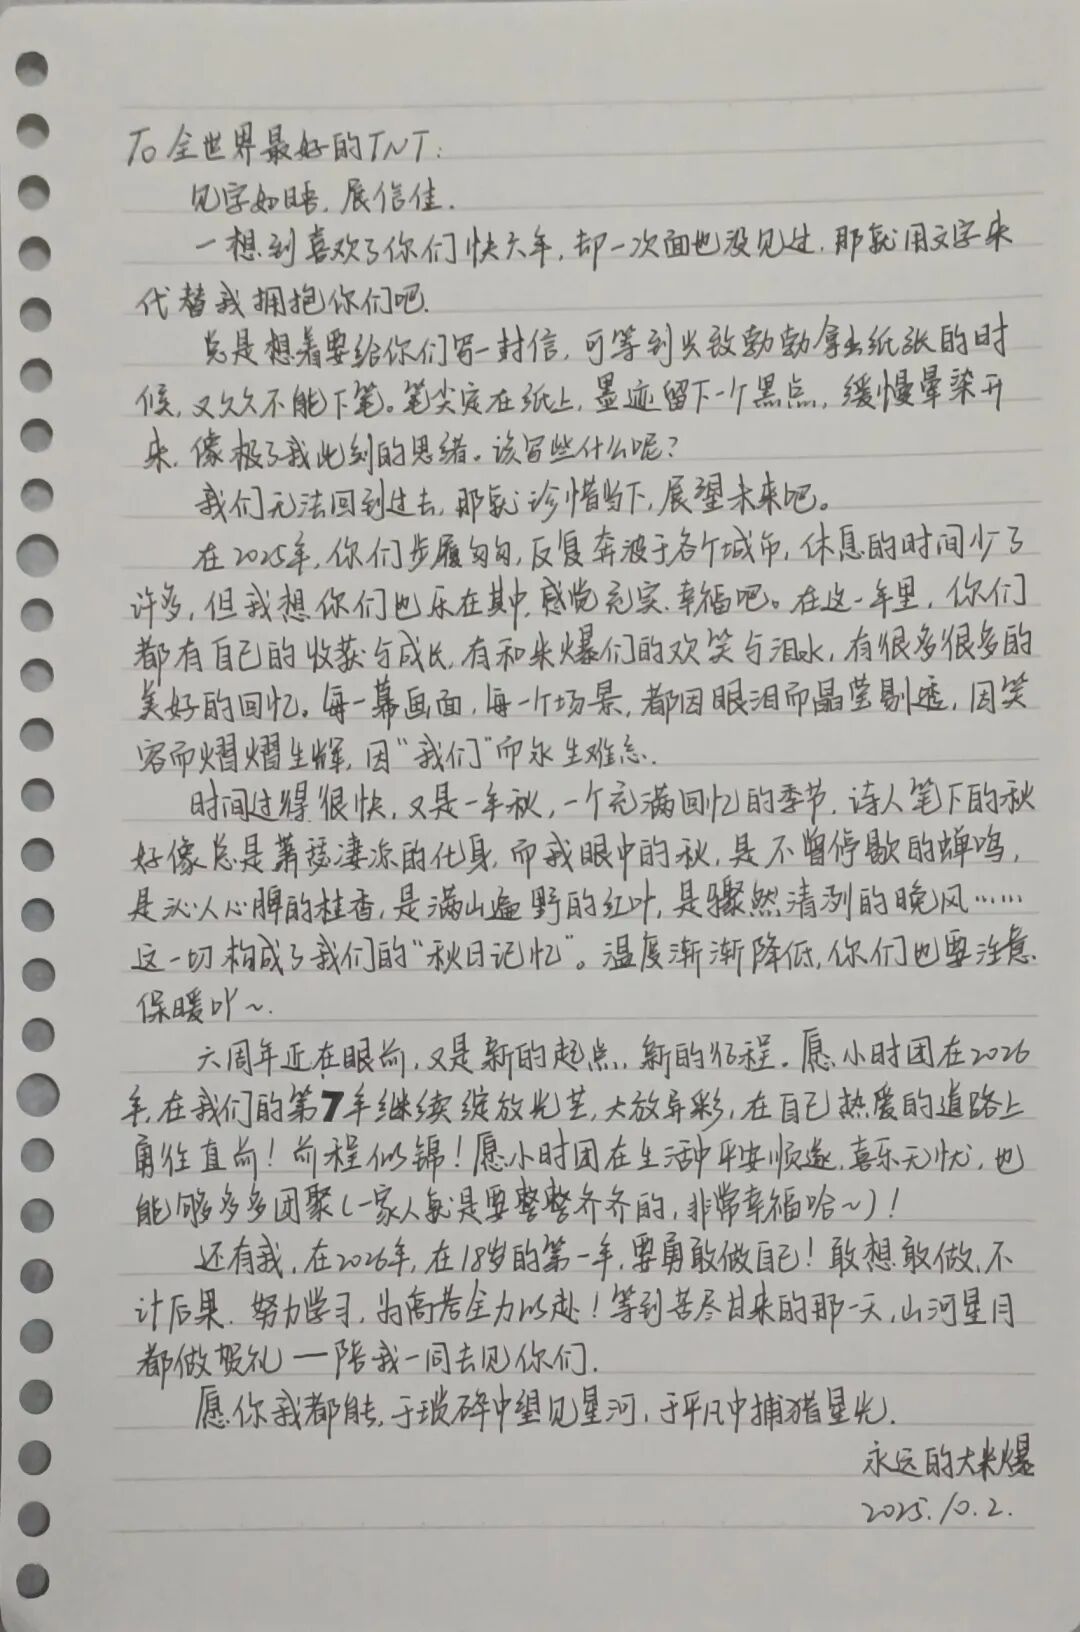 To 全世界最好的TNT：
见字如晤，展信佳.
一想到喜欢了你们快六年，却一次面也没见过，那就用文字来
代替我拥抱你们吧.
总是想着要给你们写一封信，可等到兴致勃勃拿出纸张的时
候，又久久不能下笔。笔尖定在纸上，墨迹留下一个黑点，缓慢晕染开
来，像极了我此刻的思绪。该写些什么呢？
我们无法回到过去，那就珍惜当下，展望未来吧。
在2025年，你们步履匆匆，反复奔波于各个城市，休息的时间少了
许多，但我想你们也乐在其中，感觉充实、幸福吧。在这一年里，你们
都有自己的收获与成长，有和米爆们的欢笑与泪水，有很多很多的
美好的回忆。每一幕画面，每一个场景，都因眼泪而晶莹剔透，因笑
容而熠熠生辉，因“我们”而永生难忘.
时间过得很快，又是一年秋，一个充满回忆的季节，诗人笔下的秋
好像总是萧瑟凄凉的化身，而我眼中的秋，是不曾停歇的蝉鸣，
是沁人心脾的桂香，是满山遍野的红叶，是骤然清冽的晚风……
这一切构成了我们的“秋日记忆”。温度渐渐降低，你们也要注意
保暖吖～.
六周年近在眼前，又是新的起点，新的征程。愿小时团在2026
年，在我们的第7年继续绽放光芒，大放异彩，在自己热爱的道路上
勇往直前！前程似锦！愿小时团在生活中平安顺遂，喜乐无忧，也
能够多多团聚（一家人就是要整整齐齐的，非常幸福哈～）！
还有我，在2026年，在18岁的第一年，要勇敢做自己！敢想敢做，不
计后果，努力学习，为高考全力以赴！等到苦尽甘来的那一天，山河星月
都做贺礼——陪我一同去见你们.
愿你我都能，于琐碎中望见星河，于平凡中捕猎星光.
永远的大米爆
2025.10.2.